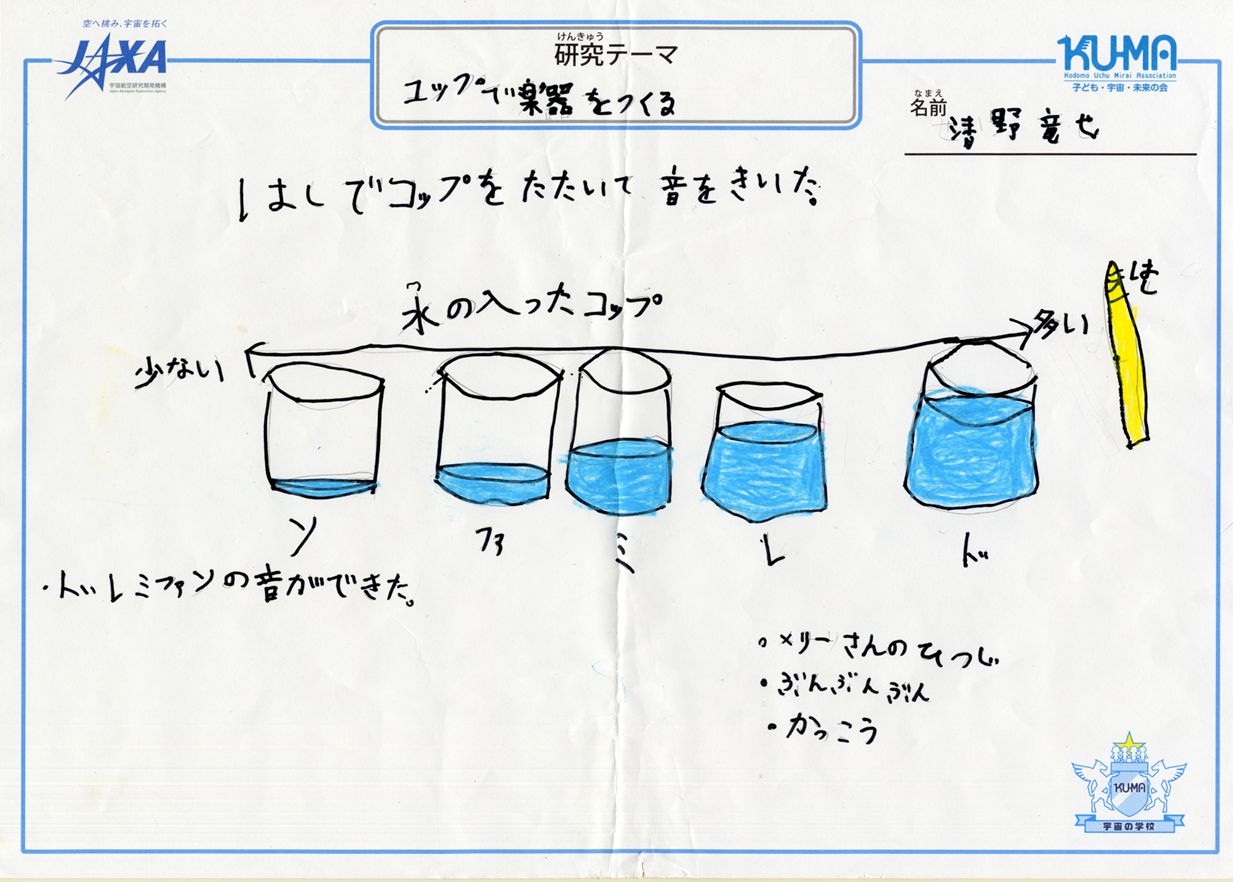 空へ挑み、宇宙を拓く
JAXA
宇宙航空研究開発機構
Japan Aerospace Exploration Agency
けんきゅう
研究テーマ
コップで楽器をつくる
KU-MA
Kodomo Uchu Mirai Association
子ども・宇宙・未来の会
なまえ
名前 清野竜也
はしでコップをたたいて音をきいた。
水の入ったコップ
少ない
多い
はし
ソ ファ ミ レ ド
・ドレミファソの音ができた。
・メリーさんのひつじ
・ぶんぶんぶん
・かっこう
KU-MA
宇宙の学校